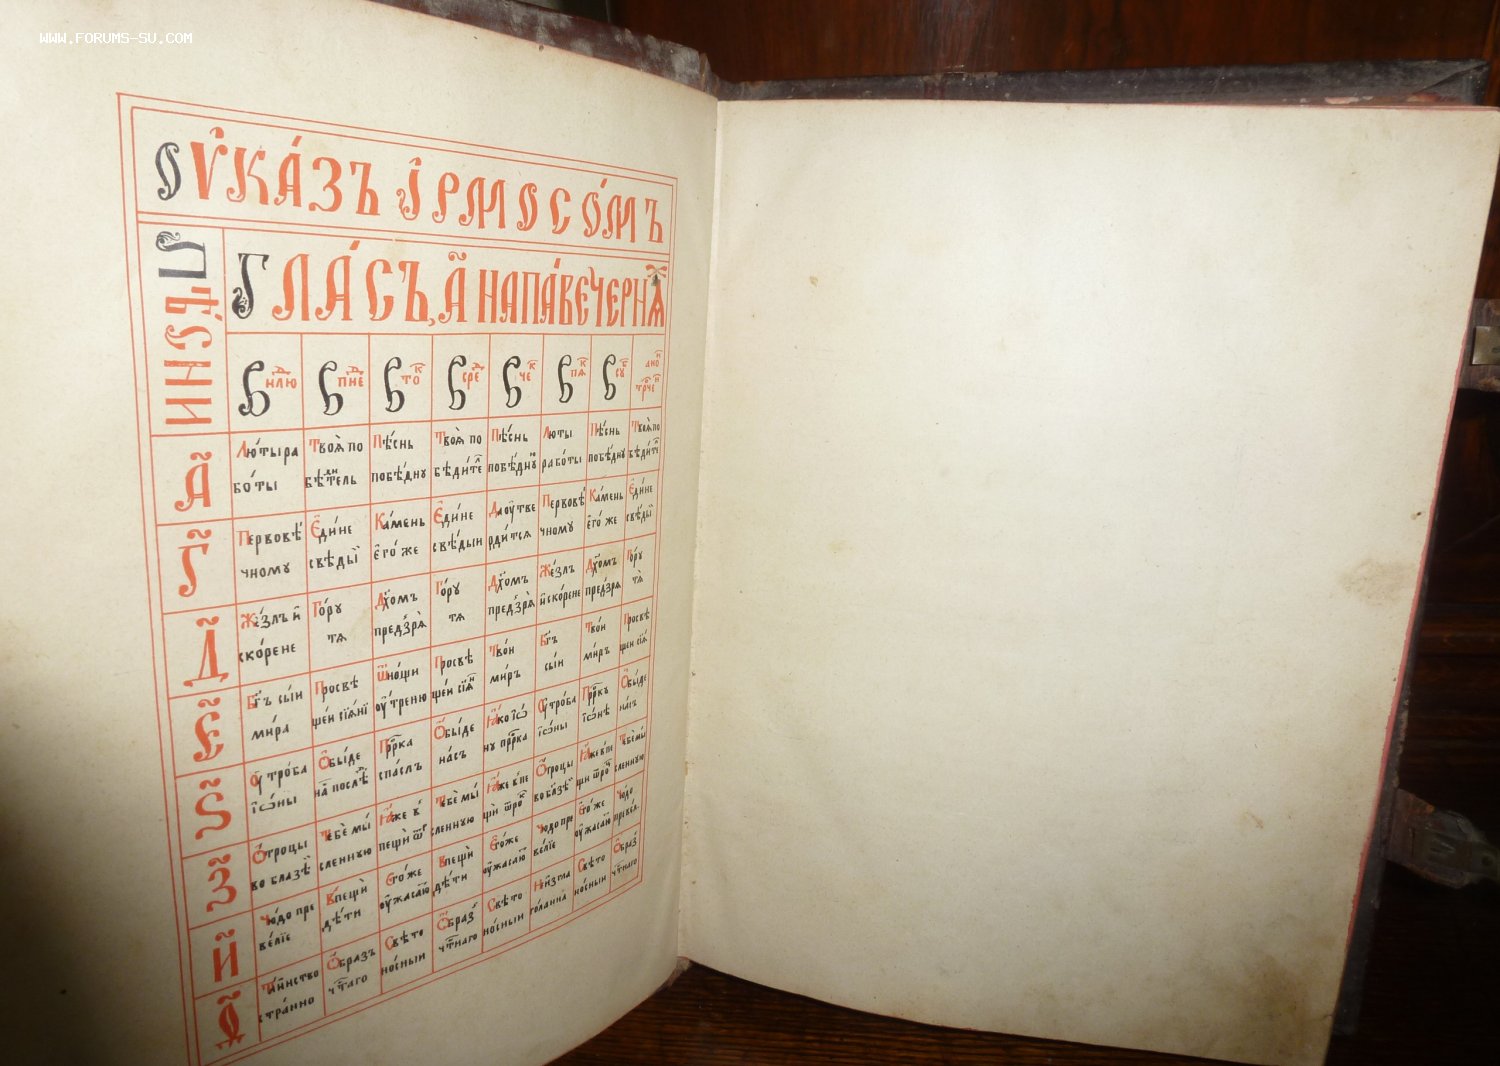 WWW.FORUMS-SU.COM
Ѹка́зъ і҆рмосо́мъ
Гла́съ, а҃ напа́вечерня
В нлю
В пне
В то
В сре
В че
В пя
В су
а҃
Лю́тыра
бо́ты
Твоѧ̀ по
бѣди́тель
Пѣ́снь
побѣ́днꙋ
Твоѧ̀ по
бѣди́те
Пѣ́снь
побѣ́дн
Лю́ты
рабо́ты
Пѣ́снь
побѣ́днꙋ
Твоѧ̀ по
бѣди́те
г҃
Первовѣ́
чномꙋ
Є҆ди́не
свѣ́ды
Ка́мень
є҆го́ же
Є҆ди́не
свѣ́дыи
Да ѹ҆тве
рди́тсѧ
Первовѣ́
чномꙋ
Ка́мень
є҆го́ же
Є҆ди́не
свѣ́ды
д҃
Же́злъ и҆
скоре́не
Го́рꙋ
тѧ
Дх҃омъ
предзрѧ̀
Го́рꙋ
тѧ
Дх҃омъ
предзрѧ̀
Же́злъ
и҆ скоре́не
Дх҃омъ
предзрѧ
Го́рꙋ
тѧ̀
є҃
Бг҃ъ сы́и
ми́ра
Просвѣ
ще́и сїѧ́нї
Ѿно́щи
ѹ҆́тренюю
Просвѣ
ще́и сїѧ́н
Тво́и
ми́ръ
Бг҃ъ
сы́и
Тво́и
ми́ръ
Просвѣ
ще́и сїѧ̀
ѕ҃
Ѹ҆тро́ба
і҆ѡ́ны
Ѻ҆бы́де
на послѣ́
Прⷪ҇рка
спа́слъ
Ѻ҆бы́де
на́съ
Ꙗ҆́ко і҆ѡ́
нꙋ прⷪ҇рка
Ѹ҆тро́ба
і҆ѡ́ны
Прⷪ҇ркꙋ
і҆ѡ́нѣ
Ѻ҆бы́де
на́съ
з҃
Ѻ҆́троцы
во блазѣ̀
Тебѐ мы́
сленнꙋю
Ꙗ҆́же в
пещѝ ѿ
Тебѐ мы́
сленнꙋю
Ꙗ҆́же в пе
щѝ ѿро
Ѻ҆́троцы
во блазѣ̀
Ꙗ҆́же в пе
щи ѿро
Тебѐ мы́
сленнꙋю
и҃
Чю́до пре
ве́лїе
Впещѝ
дѣ́ти
Є҆го́же
ѹ҆жаса́ю
Впещѝ
дѣ́ти
Є҆го́же
ѹ҆жаса́ю
Чю́до пре
ве́лїе
Є҆го́ же
ѹ҆жаса́ю
Чю́до
преве́л
ѳ҃
Та́инство
стра́нно
Ѻ҆́бразъ
чт҃аго
Свѣто
но́сныи
Ѻ҆́браз
чт҃наго
Свѣто
но́сныи
Неизгла
го́ланна
Свѣто
но́сныи
Ѻ҆́браз
чт҃наго